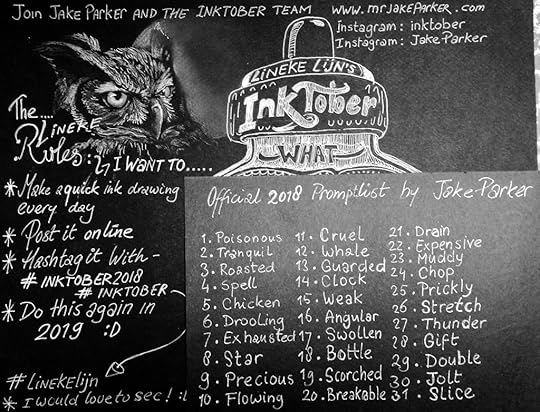 Join Jake Parker and the Inktober team www.mrjakeparker.com
Instagram: inktober
Instagram: JakeParker
LiNEKE LiJN'S
InkTober
WHAT
The....
LiNEKE
Rules:
I WANT TO.....
* Make a quick ink drawing
every day
* Post it online
* Hashtag it With -
# INKTOBER2018
# INKTOBER
* Do this again in
2019 :D
#LiNEKElijn
* I would love to see! :)
Official 2018 Promptlist by Jake Parker
1. Poisonous
2. Tranquil
3. Roasted
4. Spell
5. Chicken
6. Drooling
7. Exhausted
8. Star
9. Precious
10. Flowing
11. Cruel
12. Whale
13. Guarded
14. Clock
15. Weak
16. Angular
17. Swollen
18. Bottle
19. Scorched
20. Breakable
21. Drain
22. Expensive
23. Muddy
24. Chop
25. Prickly
26. Stretch
27. Thunder
28. Gift
29. Double
30. Jolt
31. Slice